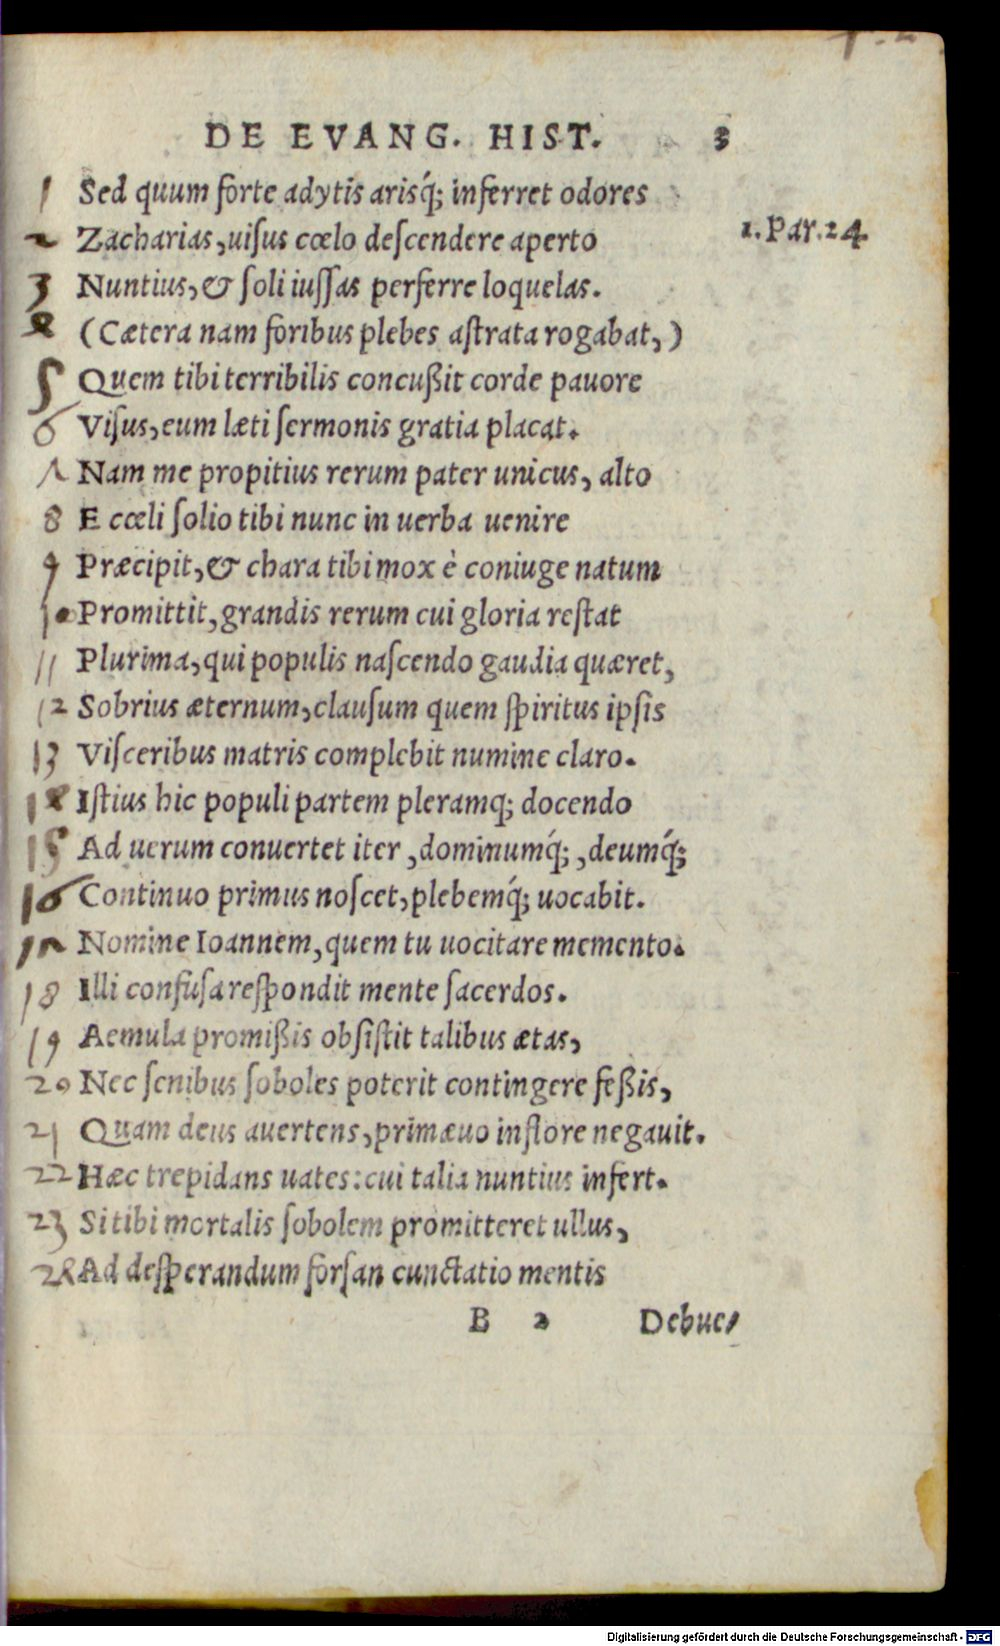 DE EVANG. HIST. 3
1 Sed quum forte adytis arisq́; inferret odores
2 Zacharias, uiſus cœlo deſcendere aperto
1. Par. 24.
3 Nuntius, & ſoli iuſſas perferre loquelas.
4 (Cætera nam foribus plebes aſtrata rogabat,)
5 Quem tibi terribilis concußit corde pauore
6 Viſus, eum læti ſermonis gratia placat.
7 Nam me propitius rerum pater unicus, alto
8 E cœli ſolio tibi nunc in uerba uenire
9 Præcipit, & chara tibi mox è coniuge natum
10 Promittit, grandis rerum cui gloria reſtat
11 Plurima, qui populis naſcendo gaudia quæret,
12 Sobrius æternum, clauſum quem ſpiritus ipſis
13 Viſceribus matris complebit numine claro.
14 Iſtius hic populi partem pleramq; docendo
15 Ad uerum conuertet iter, dominumq́;, deumq́;
16 Continuo primus noſcet, plebemq́; uocabit.
17 Nomine Ioannem, quem tu uocitare memento.
18 Illi confuſa reſpondit mente ſacerdos.
19 Aemula promißis obſiſtit talibus ætas,
20 Nec ſenibus ſoboles poterit contingere feßis,
21 Quam deus auertens, primæuo in flore negauit.
22 Hæc trepidans uates: cui talia nuntius infert.
23 Si tibi mortalis ſobolem promitteret ullus,
24 Ad deſperandum forſan cunctatio mentis
B 2 Debue/
Digitalisierung gefördert durch die Deutsche Forschungsgemeinschaft - DFG